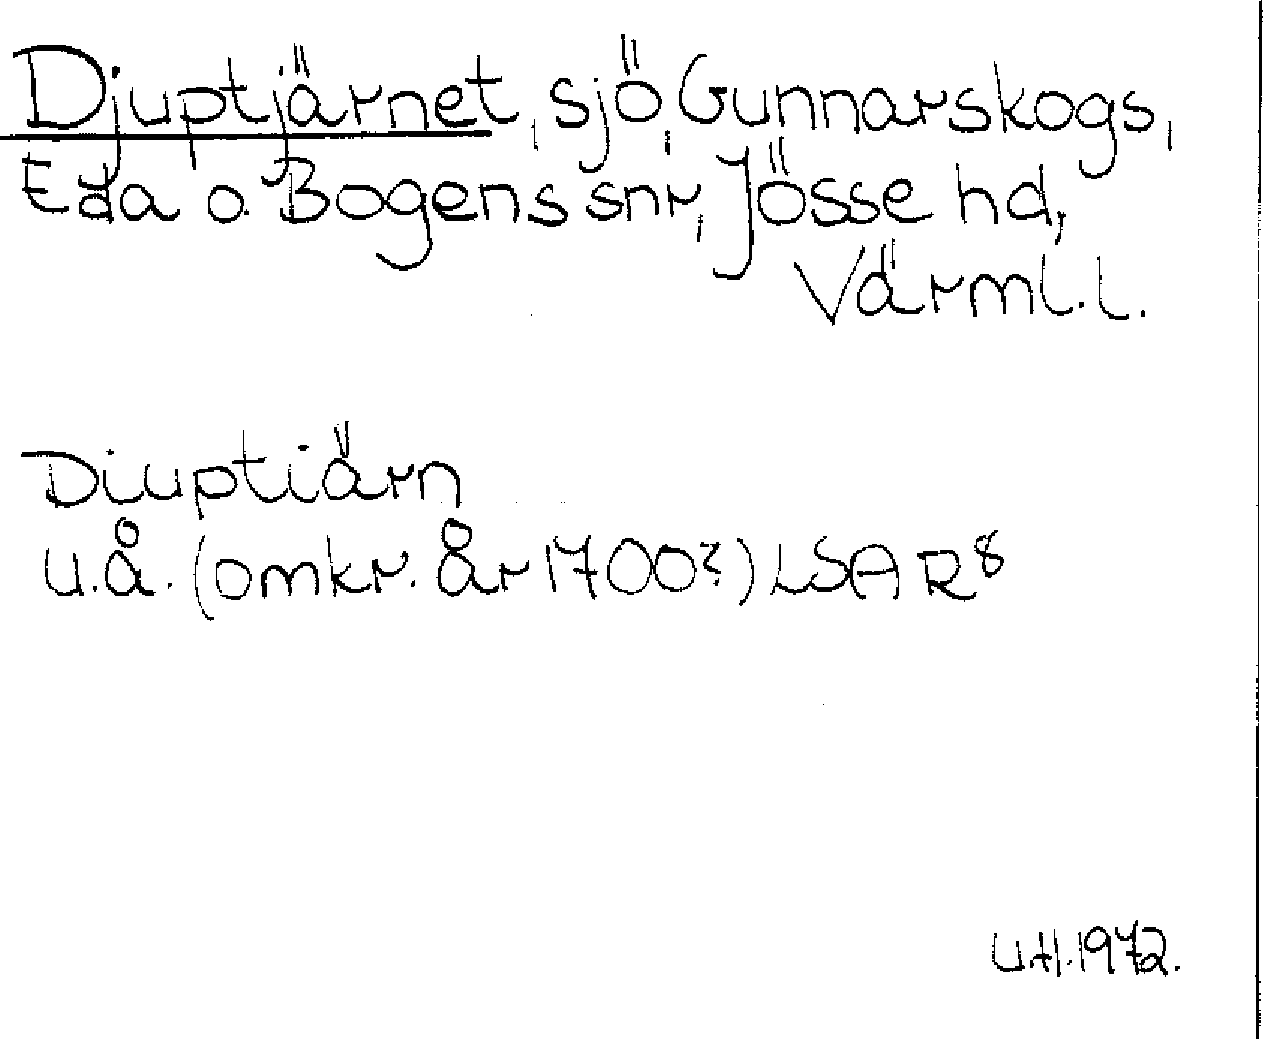 Djuptjärnet, sjö, Gunnarskogs,
Eda o. Bogens snr, Jösse hd,
Värml. l.
Diuptiärn
u.å. (omkr. år 1700?) LSA R8
U.H. 1972.